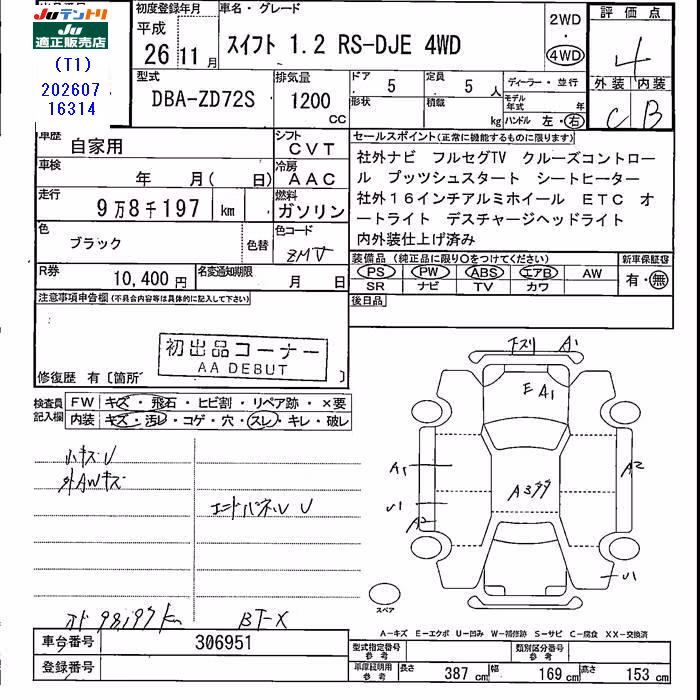 JUテントリ
JU
適正販売店
(T1)
202607
16314
初度登録年月
平成
26 11 月
車名・グレード
スイフト 1.2 RS-DJE 4WD
2WD
・
4WD
評価点
4
外装 内装
C B
型式
DBA-ZD72S
排気量
1200
CC
ドア 5
形状
定員 5 人
積載 kg
ディーラー・並行
モデル年式 年
ハンドル 左・右
車歴
自家用
シフト
CVT
車検
年 月( 日)
冷房
AAC
走行
9万8千197 km
燃料
ガソリン
色
ブラック
色替
色コード
ZMV
R券
10,400 円
名変通知期限
月 日
セールスポイント(正常に機能するものに限ります)
社外ナビ フルセグTV クルーズコントロー
ル プッツシュスタート シートヒーター
社外16インチアルミホイール ETC オ
ートライト デスチャージヘッドライト
内外装仕上げ済み
装備品 (純正品に限り○をつけてください)
PS PW ABS エアB AW
SR ナビ TV カワ
新車保証書
有・無
後日品
注意事項申告欄(不具合内容等は具体的に記入して下さい)
初出品コーナー
AA DEBUT
修復歴 有〔箇所 〕
検査員
記入欄
FW キズ・飛石・ヒビ割・リペア跡・×要
内装 キズ・汚レ・コゲ・穴・スレ・キレ・破レ
小キズU
外AWキズ
エンドパネルU
オド 98,197km
BT-X
キズリ A1
E A1
A1
U1
A2
A2
U1
スペア
A−キズ E−エクボ U−凹み W−補修跡 S−サビ C−腐食 XX−交換済
車台番号
306951
登録番号
型式指定番号
参考
類別区分番号
参考
車庫証明用
参考
長さ 387 cm
幅 169 cm
高さ 153 cm